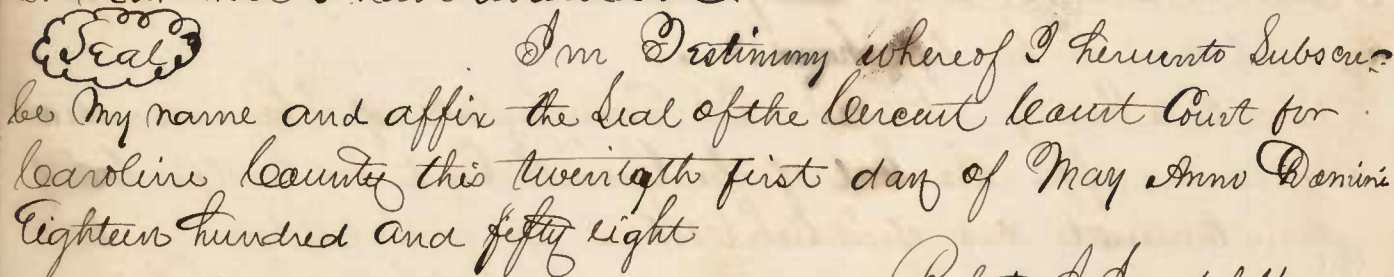 Seal In Testimony whereof I hereunto Subscri=
be My name and affix the Seal of the Circuit Court Court for
Caroline County this twentyth first day of May Anno Domini
Eighteen hundred and fifty eight